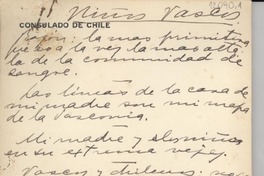 Niños Vascos
CONSULADO DE CHILE
Razón: la mas primitiva
que es a la vez la mas alta,
la de la comunidad de
sangre.
Las líneas de la casa de
mi madre son mi mapa
de Vasconia.
Mi madre y los niños
en su extrema vejez.
Vascos y chilenos